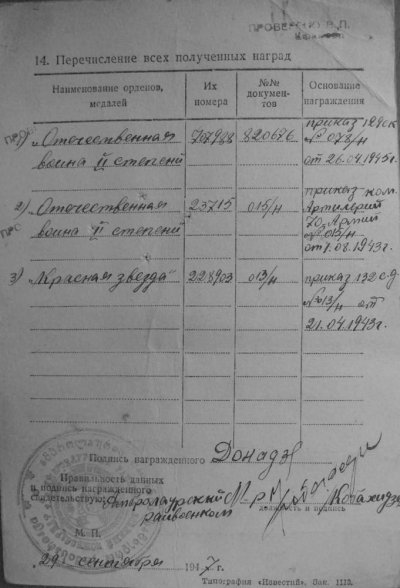 ПРОВЕРЕНО В. П.
14. Перечисление всех полученных наград
Наименование орденов, медалей
Их номера
№№ документов
Основание награждения
1) „Отечественная 707988 820676 приказ
война II степени" № 078/н
от 26.04.1945г.
2) „Отечественная 23715 015/н приказ ком.
Артиллерий
война II степени" 70 Армий
№ 015/н
от 1.08.1943г.
3) „Красная звезда" 228903 013/н приказ 132 с.д
№ 013/н от
21.04.1943г.
Подпись награжденного Донадзе
Правильность данных
и подпись награжденного
свидетельствую: Амбролаурский М-р
райвоенком
должность и подпись
М. П.
29 сентября 1947 г.
Типография «Известий». Зак. 1113.